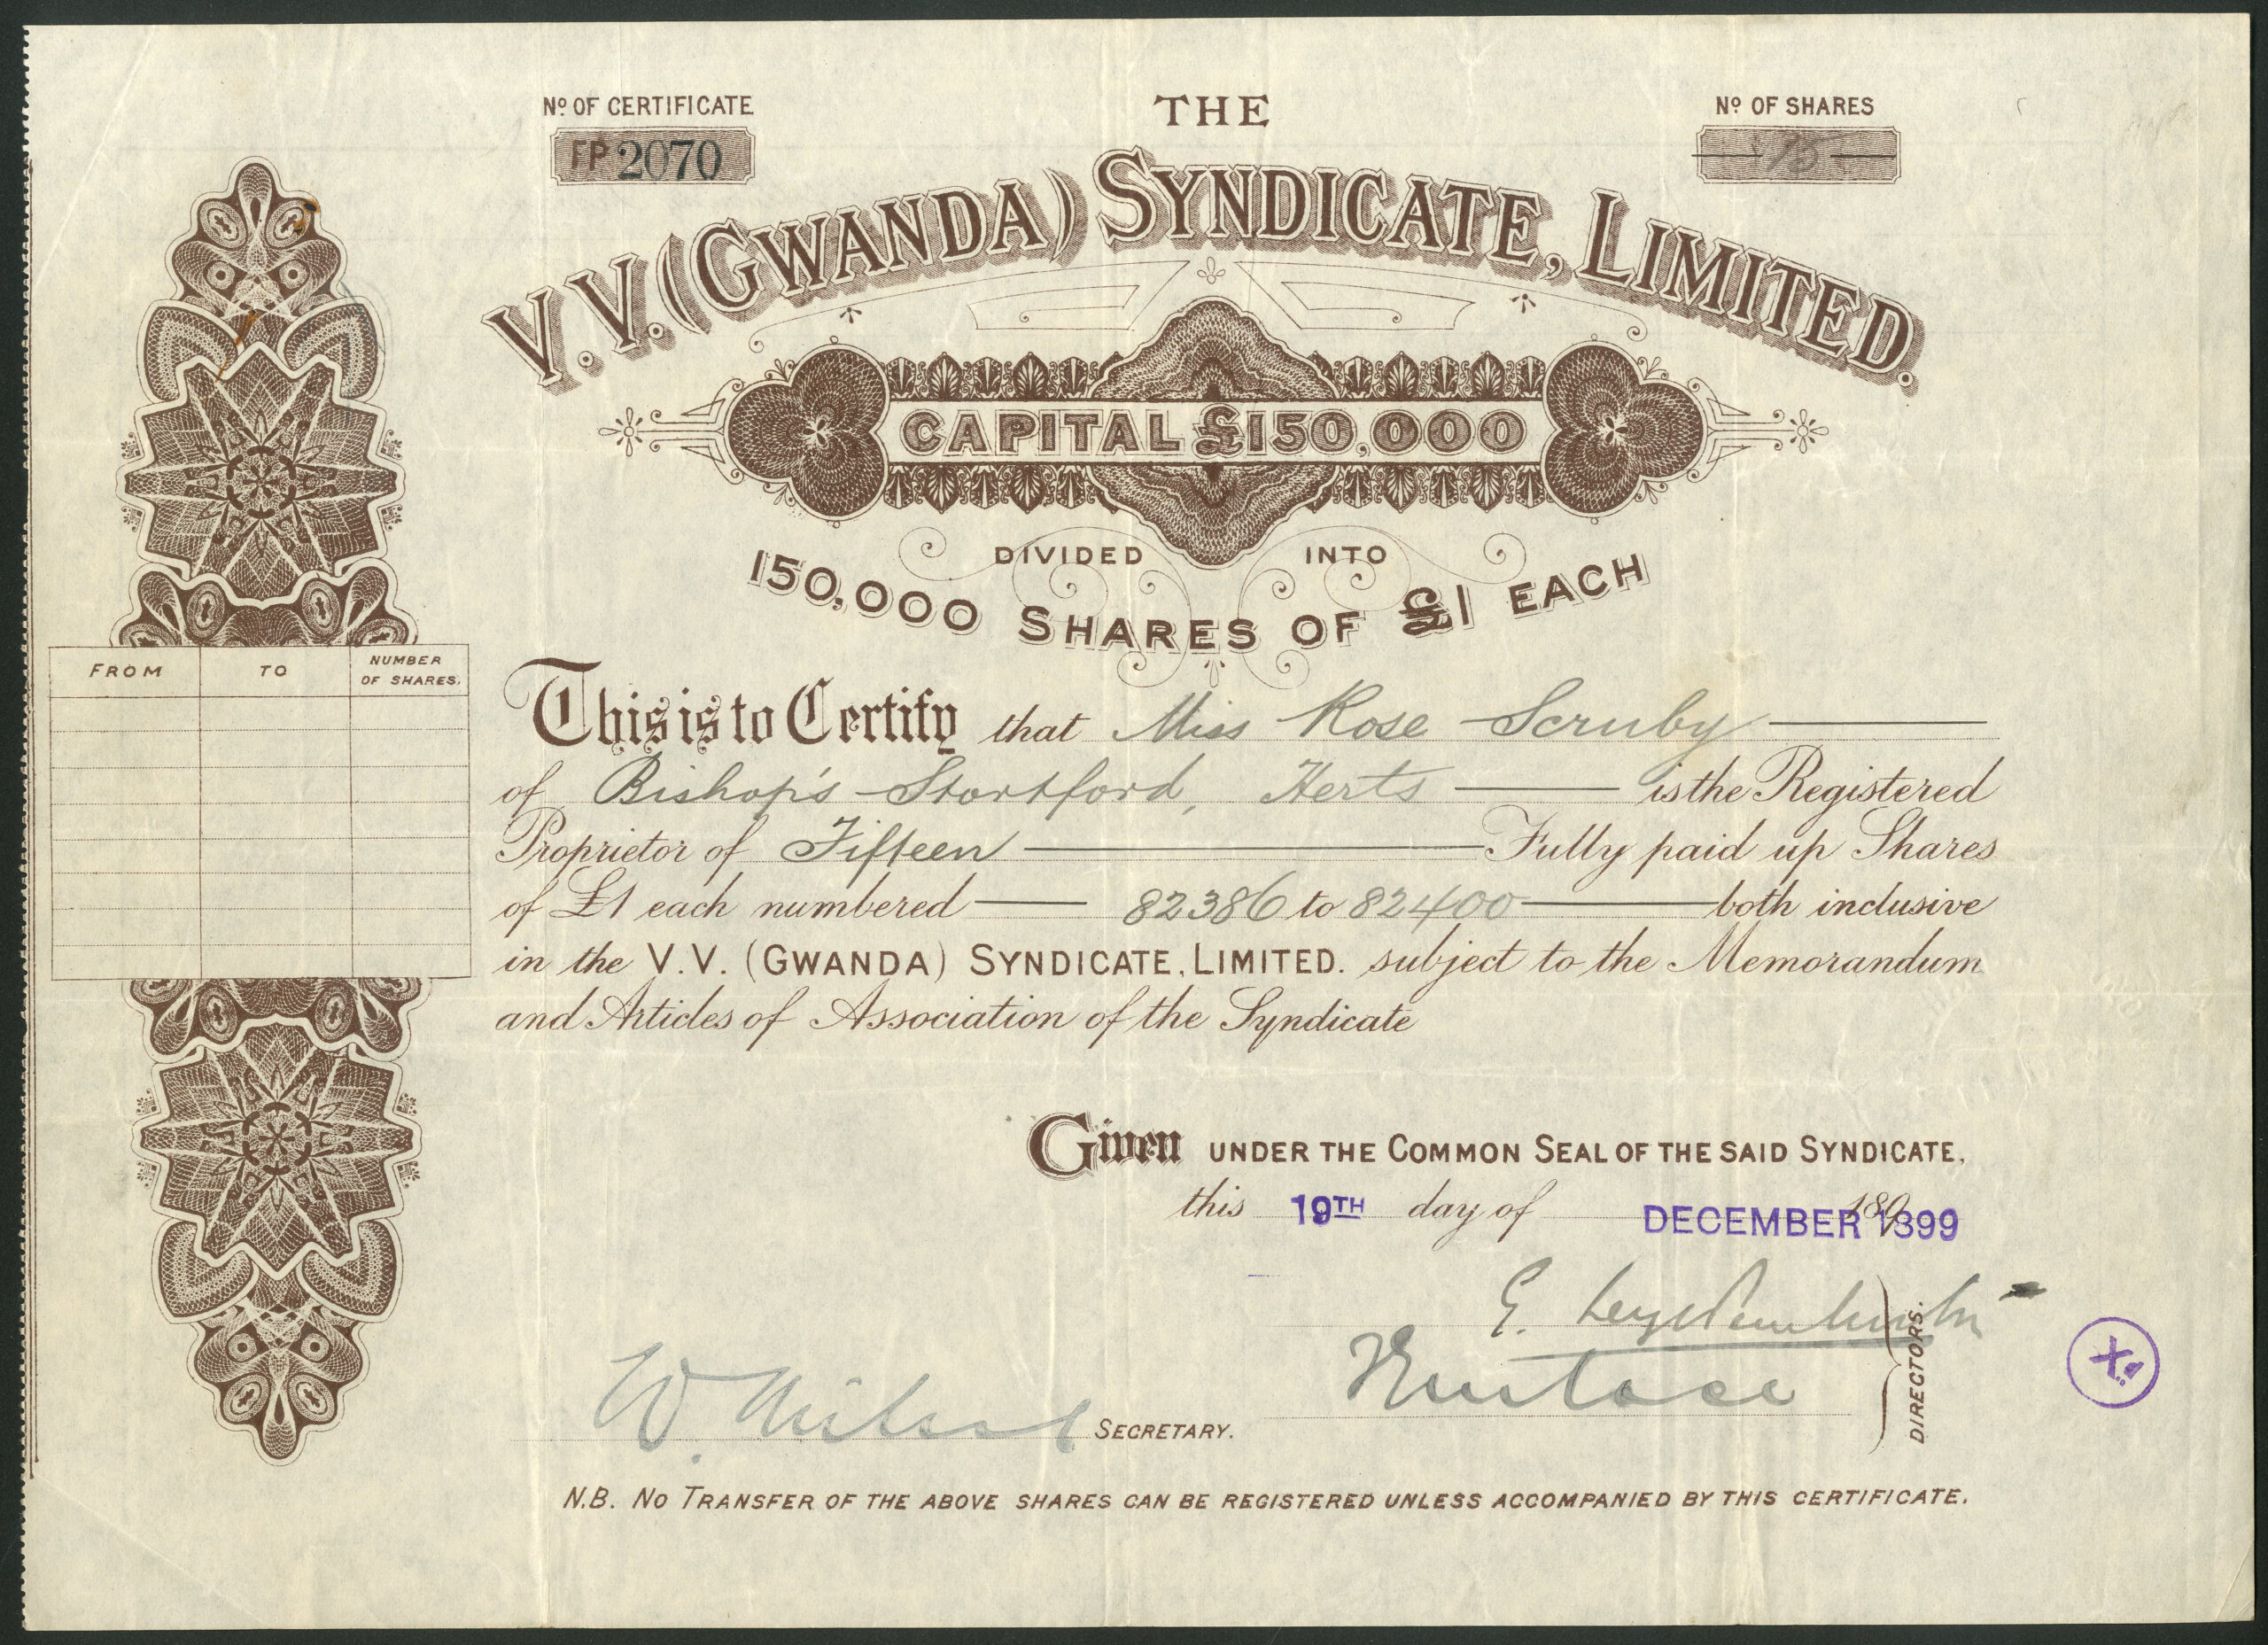 Nº OF CERTIFICATE
FP 2070
THE
Nº OF SHARES
15
V.V. (GWANDA) SYNDICATE, LIMITED.
CAPITAL £150,000
DIVIDED INTO
150,000 SHARES OF £1 EACH
FROM TO NUMBER OF SHARES.
This is to Certify that Miss Rose Scruby
of Bishop's Stortford, Herts is the Registered
Proprietor of Fifteen Fully paid up Shares
of £1 each numbered 82386 to 82400 both inclusive
in the V.V. (GWANDA) SYNDICATE, LIMITED. subject to the Memorandum
and Articles of Association of the Syndicate
Given UNDER THE COMMON SEAL OF THE SAID SYNDICATE,
this 19TH day of DECEMBER 1899 189
E.
Eustace
DIRECTORS.
W. SECRETARY.
X.
N.B. NO TRANSFER OF THE ABOVE SHARES CAN BE REGISTERED UNLESS ACCOMPANIED BY THIS CERTIFICATE.